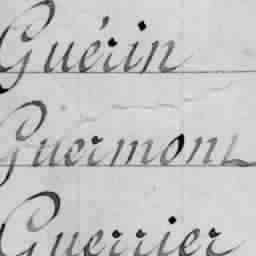 Guérin
Guermont
Guerrier